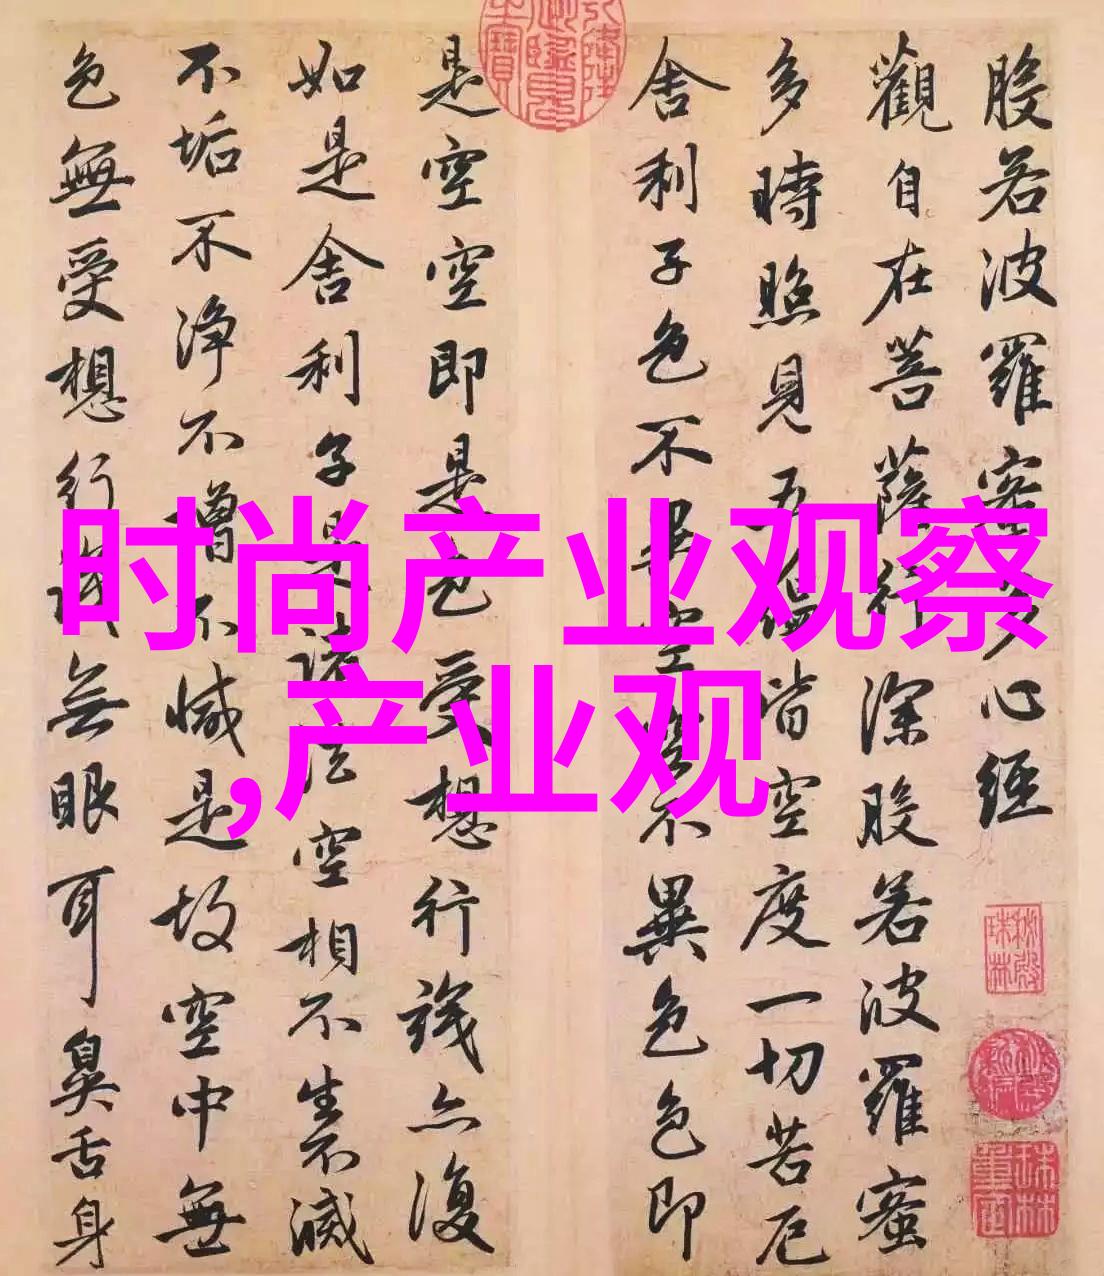 般若波羅蜜多心經
觀自在菩薩行深般若波羅蜜
多時照見五蘊皆空度一切苦厄
舍利子色不異空空不異色色即
是空空即是色受想行識亦復
如是舍利子是諸法空相不生不滅
不垢不净不增不減是故空中無
色無受想行識無眼耳鼻舌身
时尚产业观察
,产业观